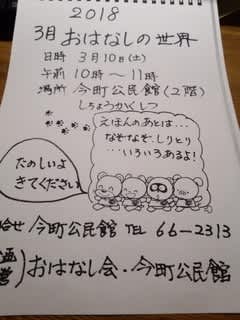 2018
3月 おはなしの世界
日時 3月10日(土)
午前 10時～11時
場所 今町公民館(2階)
しちょうかくしつ
えほんのあとは…
なぞなぞ、しりとり
…いろいろあるよ!
たのしいよ
きてください
合せ 今町公民館 TEL 66-2313
おはなし会・今町公民館